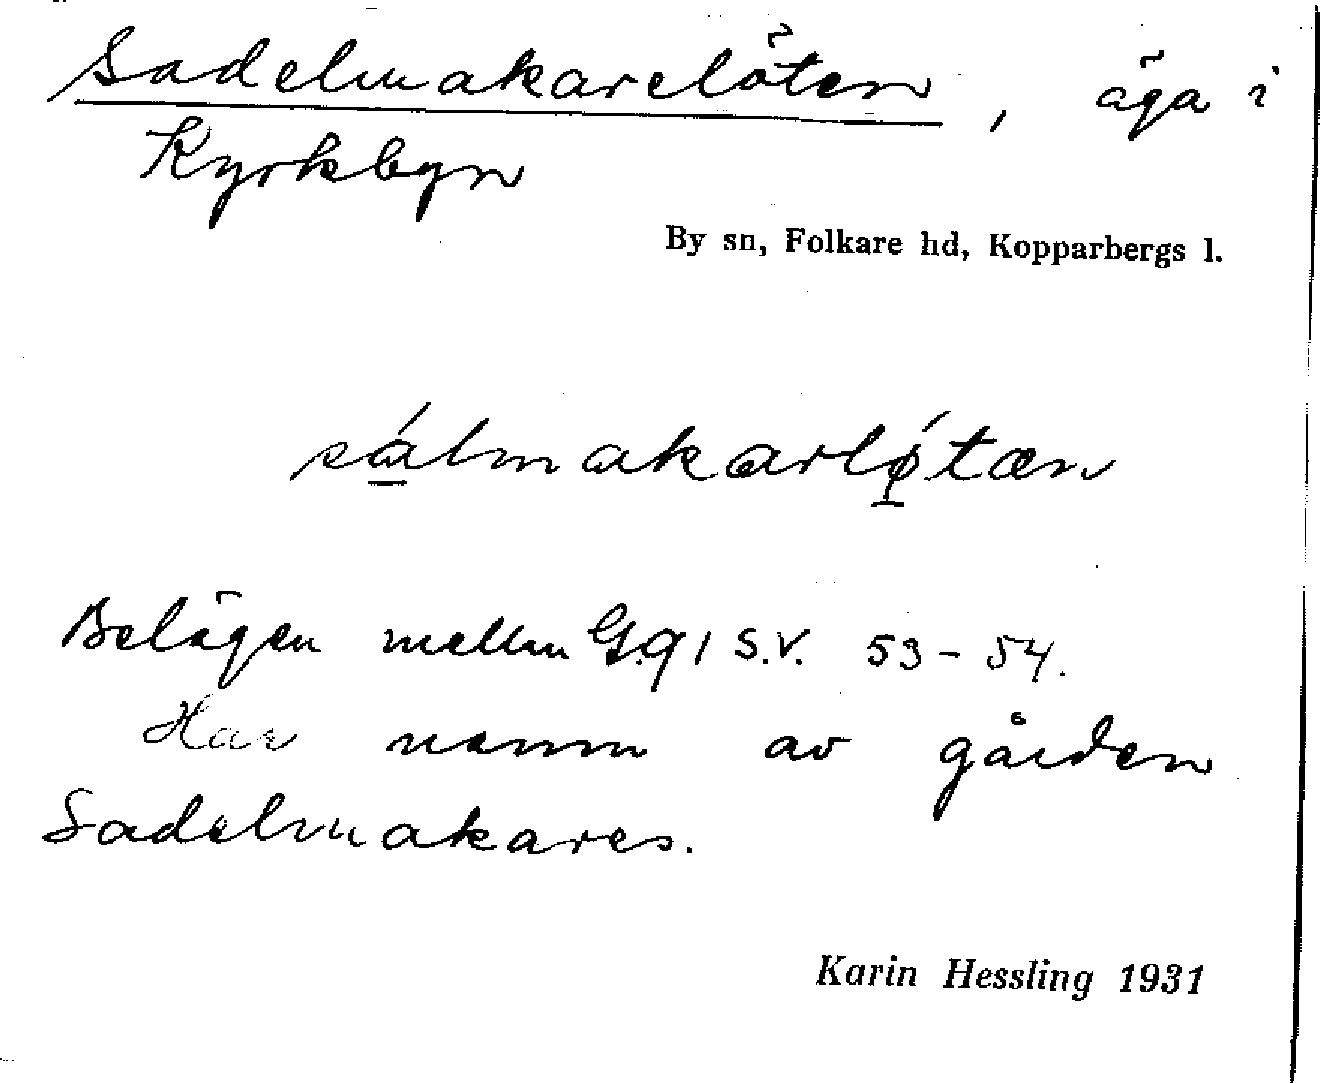 Sadelmakarelöten, äga i
Kyrkbyn
By sn, Folkare hd, Kopparbergs l.
sálmakarlǿtæn
Belägen mellan G.q 1 S.V. 53-54.
Har namn av gården
Sadelmakares.
Karin Hessling 1931